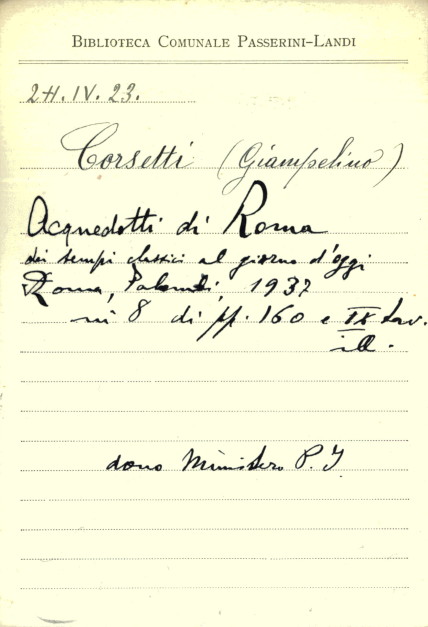 BIBLIOTECA COMUNALE PASSERINI-LANDI
2H. IV. 23.
Corsetti (Giampelino)
Acquedotti di Roma
dai tempi classici al giorno d'oggi
Roma, Palombi, 1937
in 8 di pp. 160 e IX tav.
ill.
dono Ministero P. I